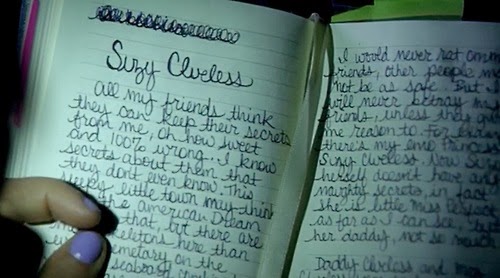 Suzy Clueless
All my friends think
they can keep their secrets
from me, oh how sweet
and 100% wrong. I know
secrets about them that
they don't even know. This
sleepy little town may think
the American Dream
that, but there are
here than
cemetary on the
I would never rat on m
friends, other people m
not be as safe. But I
will never betray my
friends, unless they giv
me reason to. For
there's my emo Princess
Suzy Clueless. Now Suzy
herself doesn't have any
naughty secrets, in fact
she is little Miss Perfect
as far as I can see, but
her daddy, not so much
Daddy Clueless and